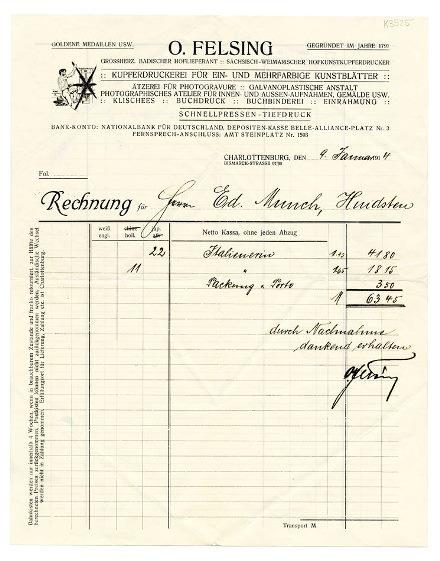 K3525
GOLDENE MEDAILLEN USW.
O. FELSING
GEGRÜNDET IM JAHRE 1797
GROSSHERZ. BADISCHER HOFLIEFERANT :: SÄCHSISCH-WEIMARISCHER HOFKUNSTKUPFERDRUCKER
:: KUPFERDRUCKEREI FÜR EIN- UND MEHRFARBIGE KUNSTBLÄTTER ::
ÄTZEREI FÜR PHOTOGRAVURE :: GALVANOPLASTISCHE ANSTALT
PHOTOGRAPHISCHES ATELIER FÜR INNEN- UND AUSSEN-AUFNAHMEN, GEMÄLDE USW.
:: KLISCHEES :: BUCHDRUCK :: BUCHBINDEREI :: EINRAHMUNG ::
SCHNELLPRESSEN-TIEFDRUCK
BANK-KONTO: NATIONALBANK FÜR DEUTSCHLAND, DEPOSITEN-KASSE BELLE-ALLIANCE-PLATZ Nr. 3
FERNSPRECH-ANSCHLUSS: AMT STEINPLATZ Nr.
CHARLOTTENBURG, DEN 9. Januar 1914
BISMARCK-STRASSE
Fol.
Rechnung für Herrn Ed. Munch, Hvidsten
weiß engl. chin. holl. jap.
Netto Kassa, ohne jeden Abzug
22 Italienerin 1.93 41 80
11 " 1.65 18 15
Packung u. Porto 3 50
M 63 45
durch Nachnahme
dankend erhalten
OFelsing
Transport M